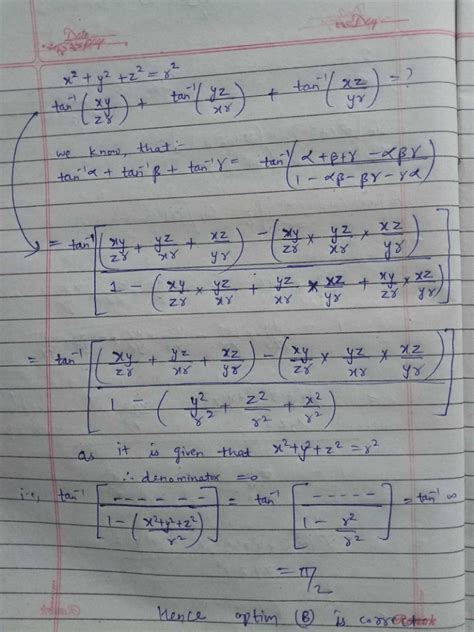 Date
Day
x² + y² + z² = r²
tan⁻¹(xy/zr) + tan⁻¹(yz/xr) + tan⁻¹(xz/yr) = ?
we know, that :-
tan⁻¹α + tan⁻¹β + tan⁻¹γ = tan⁻¹((α+β+γ - αβγ)/(1 - αβ - βγ - γα))
= tan⁻¹[((xy/zr + yz/xr + xz/yr) - (xy/zr × yz/xr × xz/yr))/(1 - (xy/zr × yz/xr + yz/xr × xz/yr + xy/zr × xz/yr))]
= tan⁻¹[((xy/zr + yz/xr + xz/yr) - (xy/zr × yz/xr × xz/yr))/(1 - (y²/r² + z²/r² + x²/r²))]
as it is given that x²+y²+z² = r²
∴ denominator = 0
i.e, tan⁻¹[------/(1 - (x²+y²+z²/r²))] = tan⁻¹[-----/(1 - r²/r²)] = tan⁻¹ ∞
= π/2
Hence optim (B) is correct